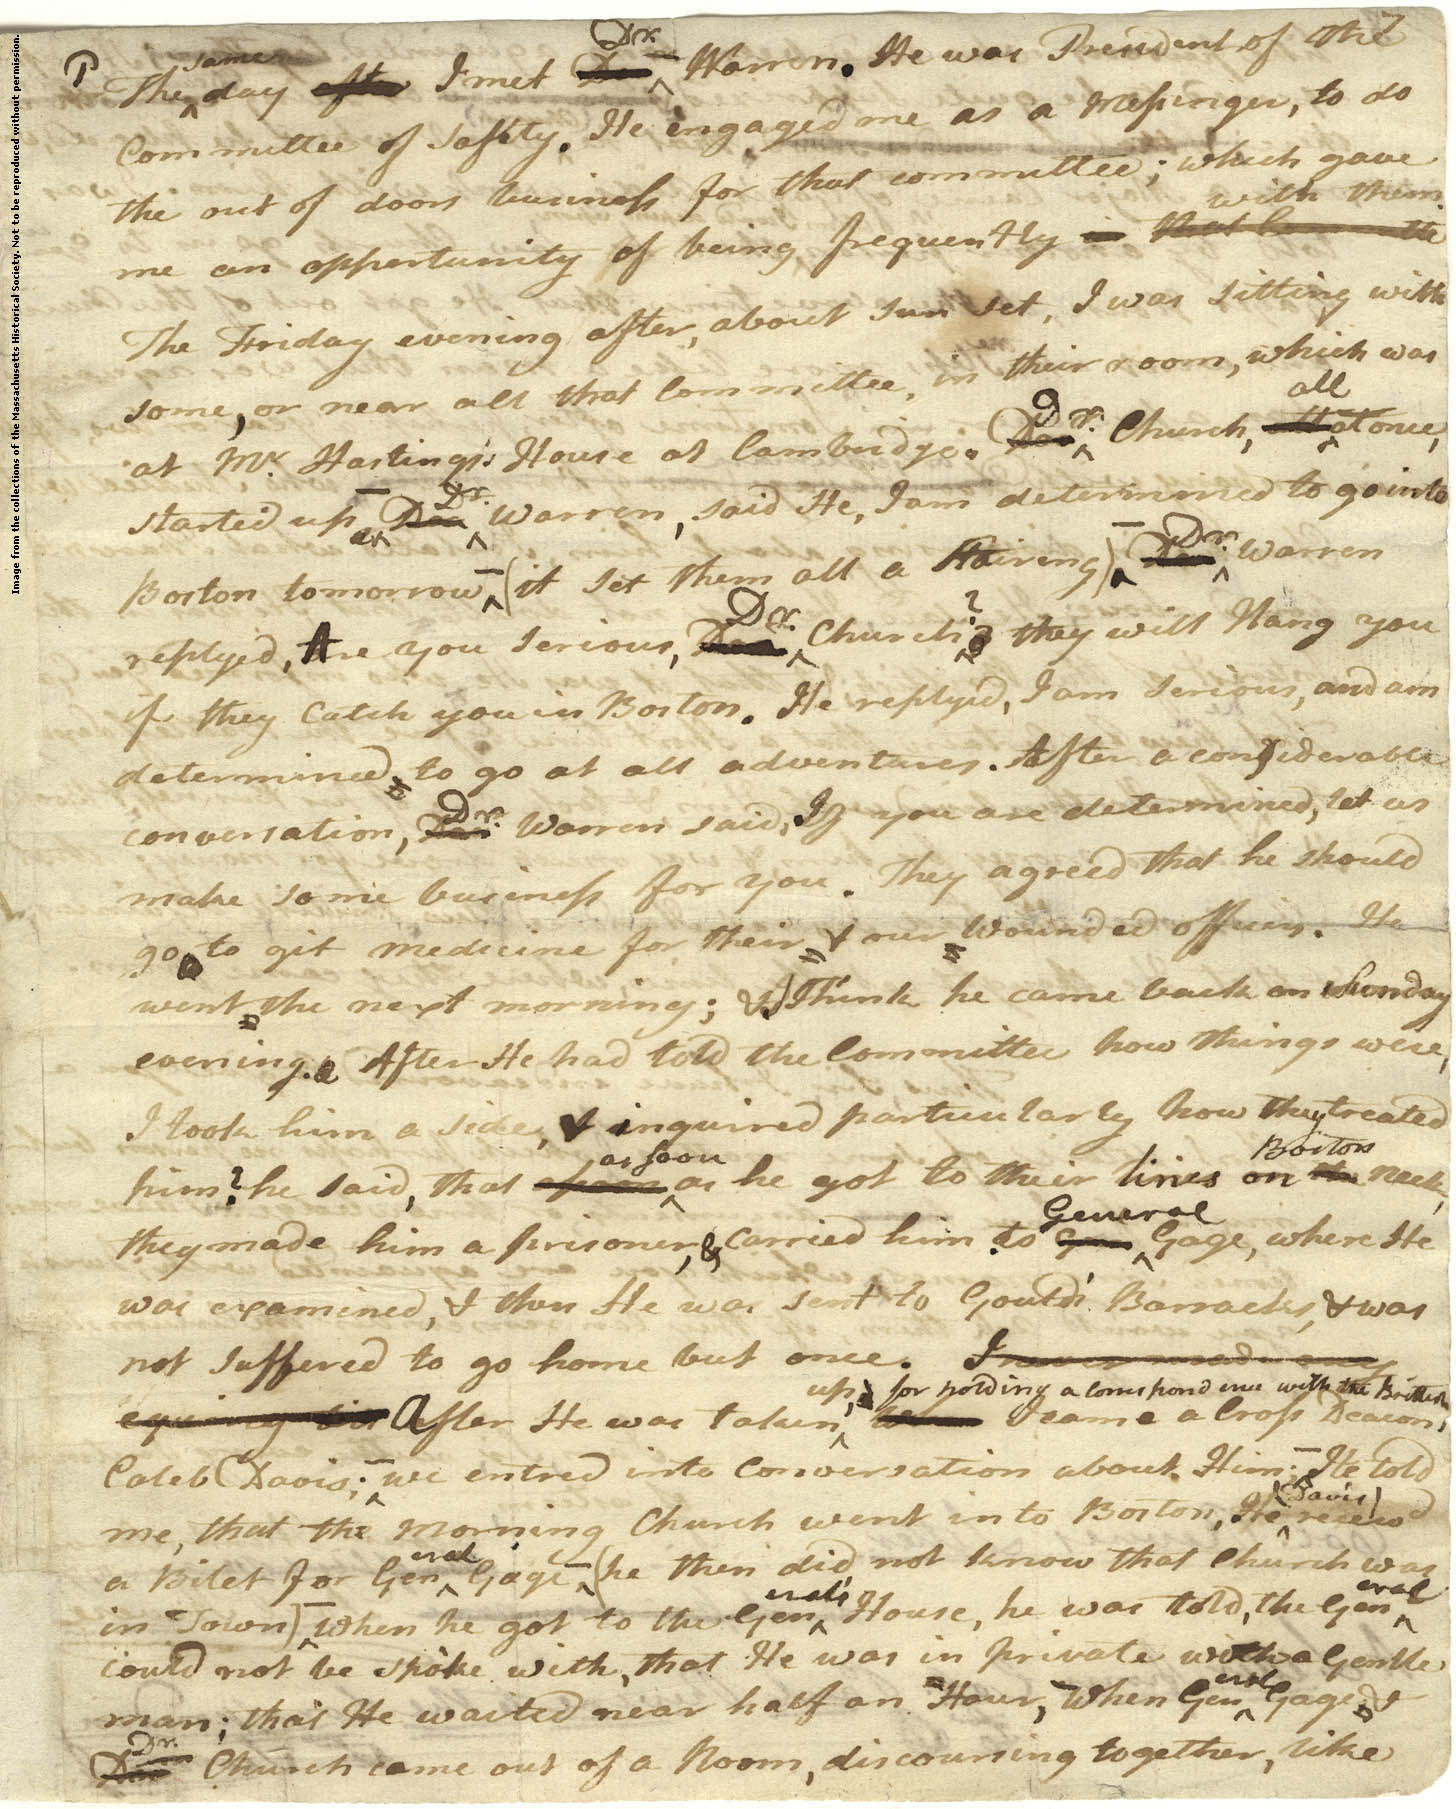 Image from the collections of the Massachusetts Historical Society. Not to be reproduced without permission.
7
same
Dr.
The day after I met Doc Warren. He was President of the
Committee of Safety. He engaged me as a Messinger, to do
the out of doors business for that committee; which gave
with them.
me an opportunity of being frequently in that Committe
The Friday evening after, about sun set, I was sitting with
some, or near all that Committee, in their room, which was
all
at Mr. Hastings's House at Cambridge. Dr. Church, all at once,
Dr.
started up – Doc Warren, said He, I am determined to go into
Dr.
Boston tomorrow – (it set them all a stairing) – Doc Warren
Dr.
replyed, Are you serious, Doc Church? they will Hang you
if they catch you in Boston. He replyed, I am serious, and am
determined to go at all adventures. After a considerable
Dr.
conversation, Doc Warren said, If you are determined, let us
make some business for you. They agreed that he should
go to git medicine for their & our Wounded officers. He
went the next morning; & I think he came back on Sunday
evening. After He had told the Committee how things were,
I took him a side, & inquired particularly how they treated
as soon Boston
him? he said, that as he got to their lines on the neck,
General
they made him a prisoner, & carried him to Gen Gage, where He
was examined, & then He was sent to Gould's Barracks, & was
not suffered to go home but once. I never made any
up, for holding a Correspondence with the Brittish,
After He was taken I came a Cross Deacon
Caleb Davis; – we entred into Conversation about Him; – He told
(Davis)
me, that the morning Church went in to Boston, He received
eral
a Bilet for Gen Gage – (he then did not know that Church was
eral's eral
in Town) – when he got to the Gen House, he was told, the Gen
could not be spoke with, that He was in private with a Gentle
eral
man; that He waited near half an Hour, – When Gen Gage &
Dr.
Doc Church came out of a Room, discoursing together, like